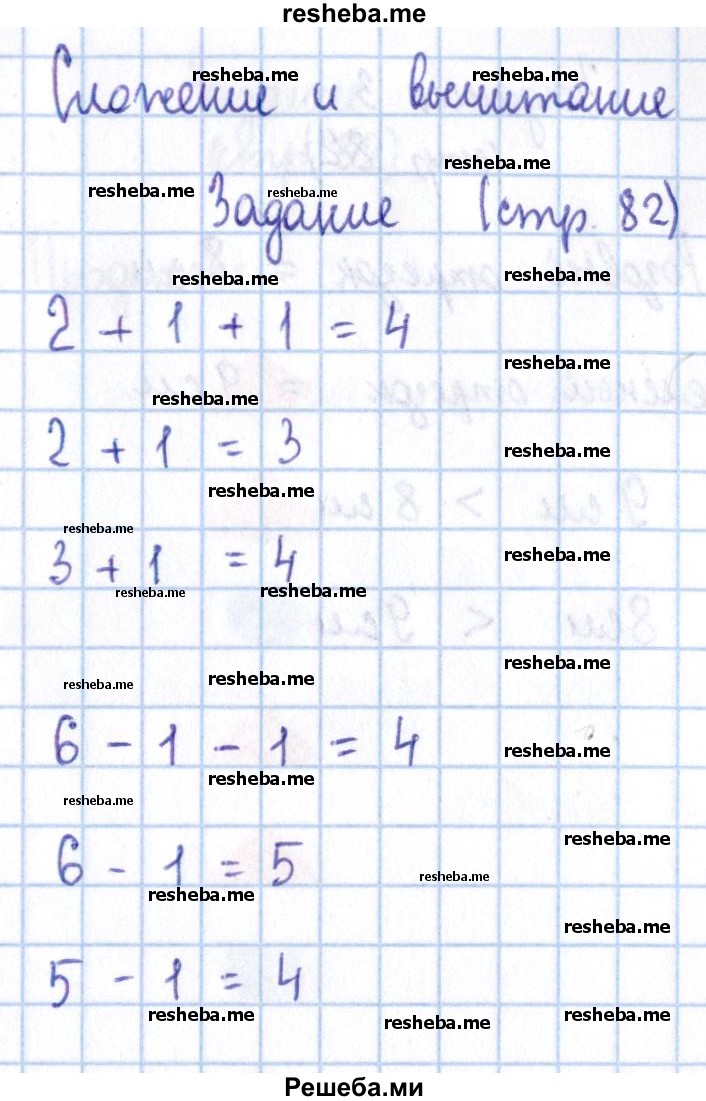 resheba.me
resheba.me resheba.me
Сложение и вычитание
resheba.me
resheba.me resheba.me
Задание (стр. 82)
resheba.me resheba.me
2 + 1 + 1 = 4
resheba.me
resheba.me
2 + 1 = 3
resheba.me
resheba.me
resheba.me
3 + 1 = 4
resheba.me
resheba.me resheba.me
resheba.me
resheba.me resheba.me
6 - 1 - 1 = 4
resheba.me
resheba.me
resheba.me
resheba.me
6 - 1 = 5
resheba.me
resheba.me
resheba.me
5 - 1 = 4
resheba.me resheba.me resheba.me
Решеба.ми